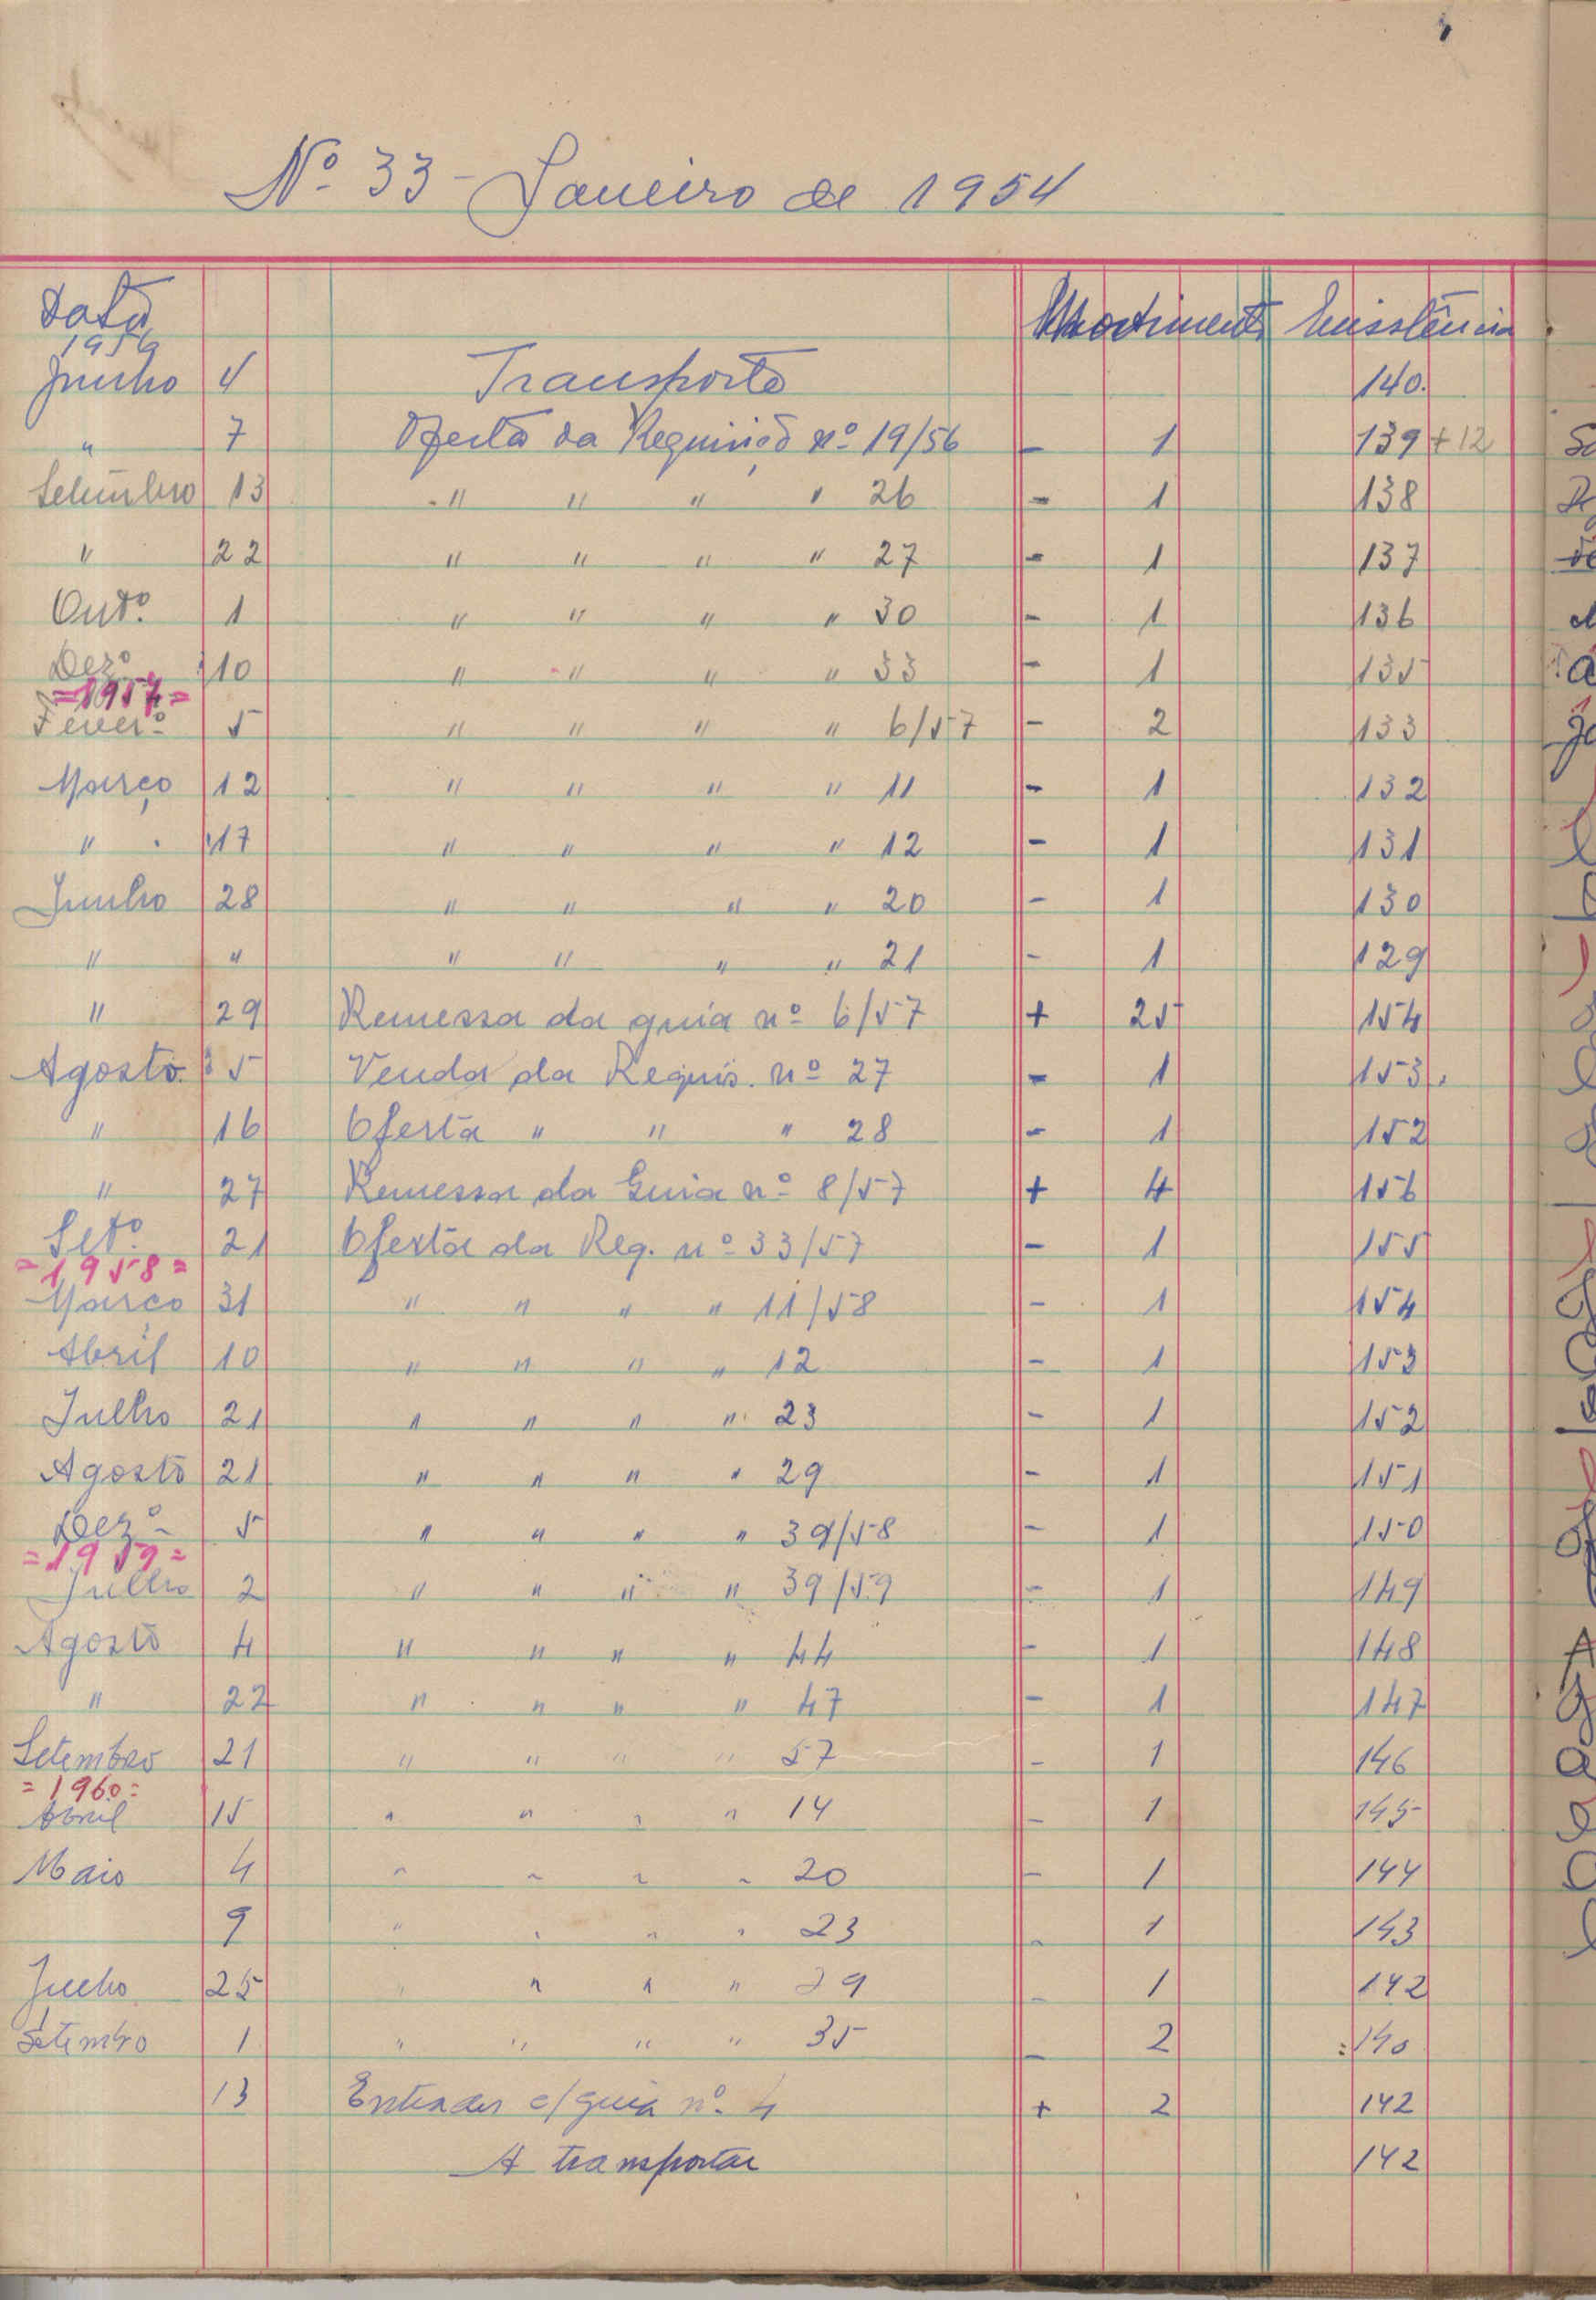 Nº 33 - Janeiro de 1954
Data Movimento Exisstência
1956
Junho 4 Transporte 140.
" 7 Oferta da Requisição nº 19/56 - 1 139 + 12
Setembro 13 " " " " 26 - 1 138
" 22 " " " " 27 - 1 137
Outº. 1 " " " " 30 - 1 136
Dezº 10 " " " " 33 - 1 135
=1957=
Feverº 5 " " " " 6/57 - 2 133
Março 12 " " " " 11 - 1 132
" 17 " " " " 12 - 1 131
Junho 28 " " " " 20 - 1 130
" " " " " " 21 - 1 129
" 29 Remessa da guia nº 6/57 + 25 154
Agosto 5 Venda da Requis. nº 27 - 1 153
" 16 Oferta " " " 28 - 1 152
" 27 Remessa da Guia nº 8/57 + 4 156
Setº. 21 Oferta da Reg. nº 33/57 - 1 155
=1958=
Março 31 " " " " 11/58 - 1 154
Abril 10 " " " " 12 - 1 153
Julho 21 " " " " 23 - 1 152
Agosto 21 " " " " 29 - 1 151
Dezº 5 " " " " 39/58 - 1 150
=1959=
Julho 2 " " " " 39/59 - 1 149
Agosto 4 " " " " 44 - 1 148
" 22 " " " " 47 - 1 147
Setembro 21 " " " " 57 - 1 146
=1960=
Abril 15 " " " " 14 - 1 145
Maio 4 " " " " 20 - 1 144
9 " " " " 23 - 1 143
Julho 25 " " " " 29 - 1 142
Setembro 1 " " " " 35 - 2 140
13 Entradas c/guia nº. 4 + 2 142
A transportar 142